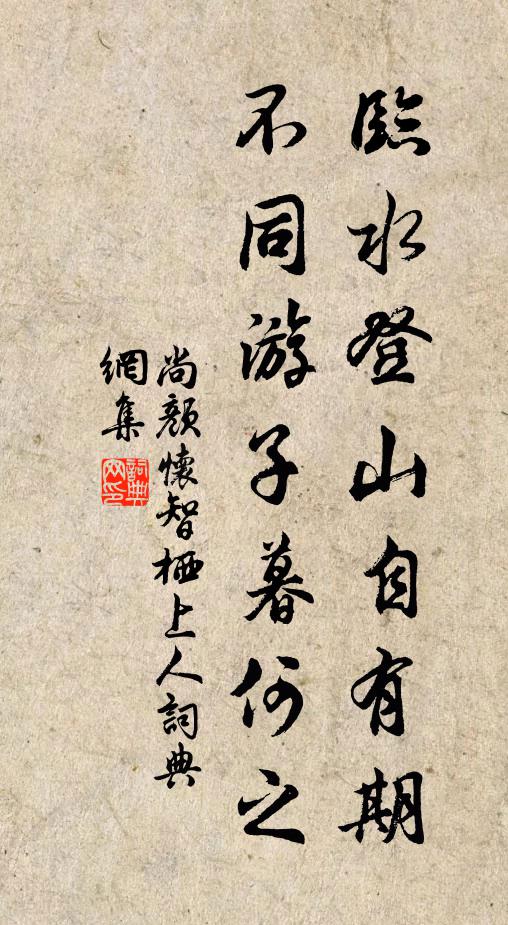 臨水登山自有期
不同游子暮何之
尚顏懷智栖上人詞典
網集
詞典
网印